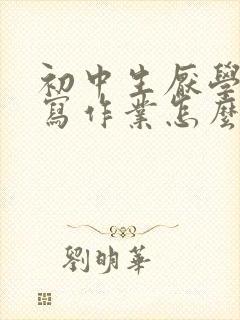 初中生厭學
寫作業怎麼
劉明華